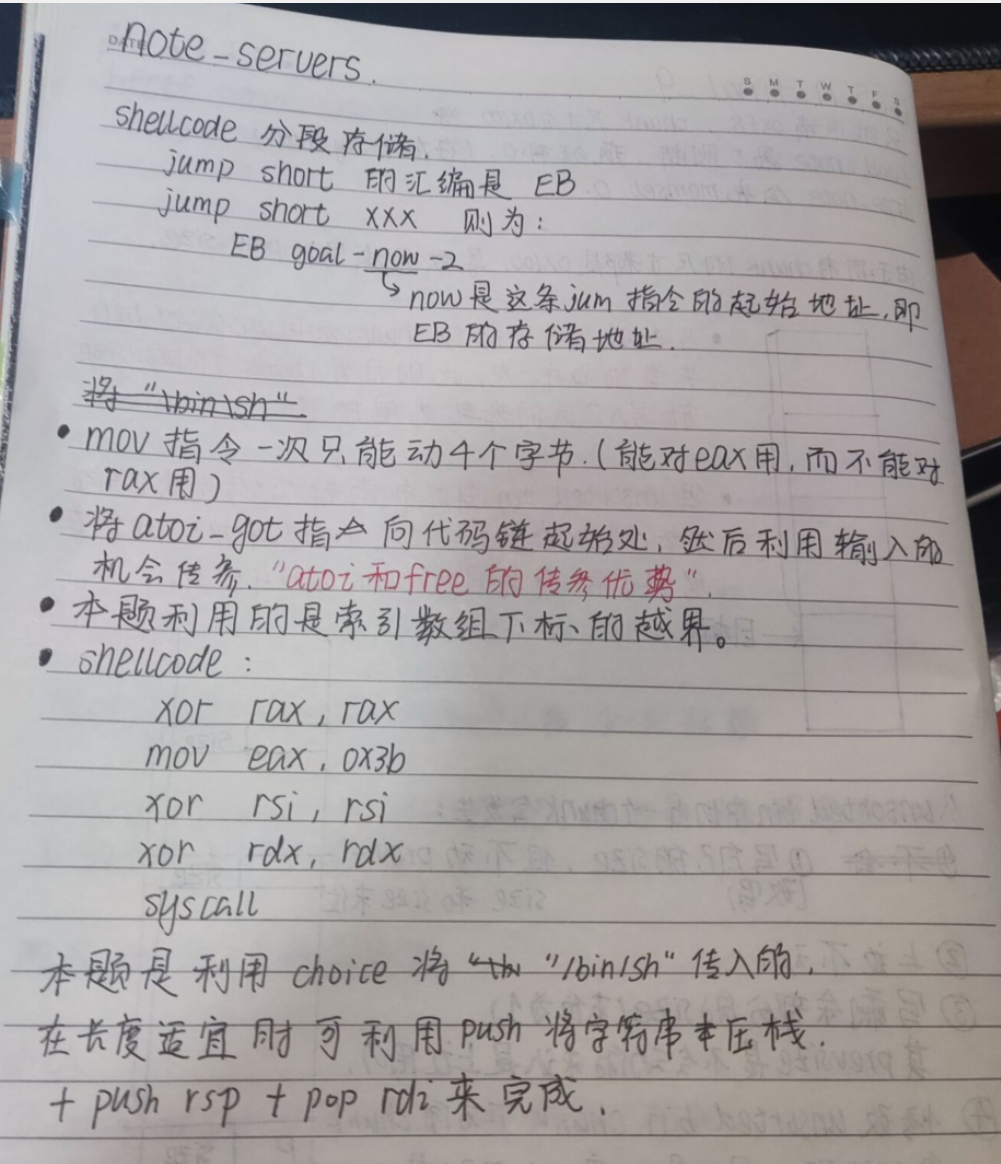 DATE
note-servers.
S M T W T F S
shellcode 分段存储.
jump short 的汇编是 EB
jump short xxx 则为:
EB goal-now-2
↳now是这条jum指令的起始地址,即
EB的存储地址.
将"\bin\sh"
• mov指令一次只能动4个字节.(能对eax用,而不能对
rax用)
• 将atoi-got指向代码链起始处,然后利用输入的
机会传参."atoi和free的传参优势".
• 本题利用的是索引数组下标的越界。
• shellcode:
xor rax, rax
mov eax, 0x3b
xor rsi, rsi
xor rdx, rdx
syscall
本题是利用choice将"/bin/sh"传入的,
在长度适宜时可利用push将字符串压栈.
+ push rsp + pop rdi来完成.